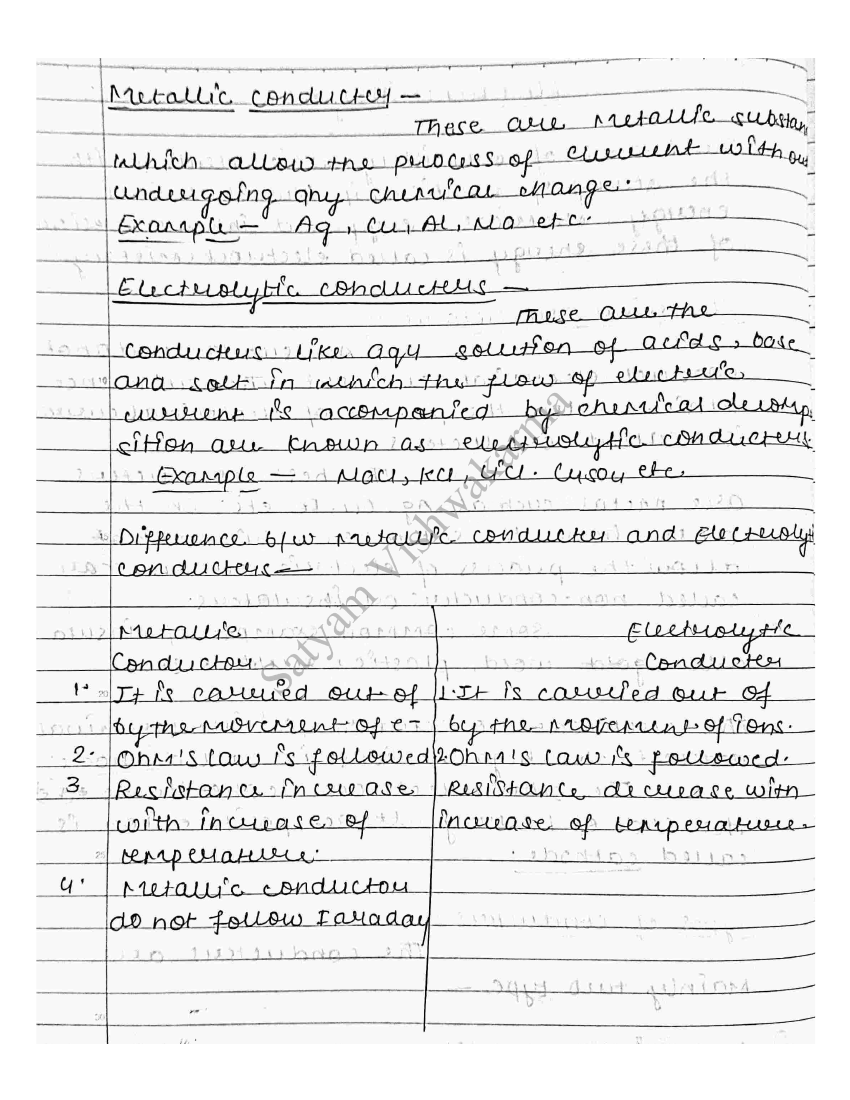 Metallic conducter —
These are metallic substan
which allow the process of current without
undergoing any chemical change.
Example — Ag, Cu, Al, Na etc.
Electrolytic conducters —
These are the
conducters like aqu solution of acids, base
and salt in which the flow of electric
current is accompanied by chemical decomp
sition are known as electrolytic conducters
Example — NaCl, KCl, LiCl. CuSO4 etc.
Difference b/w metallic conducter and Electrolyt
conducters —
Metallic Electrolytic
Conductor. Conducter
1. It is carried out of 1. It is carried out of
by the movement of e- by the movement of ions.
2. Ohm's law is followed 2. Ohm's law is followed.
3 Resistance increase Resistance decrease with
with increase of increase of temperature.
temperature.
4. Metallic conductor
do not follow Faraday
Satyam Vishwakarma